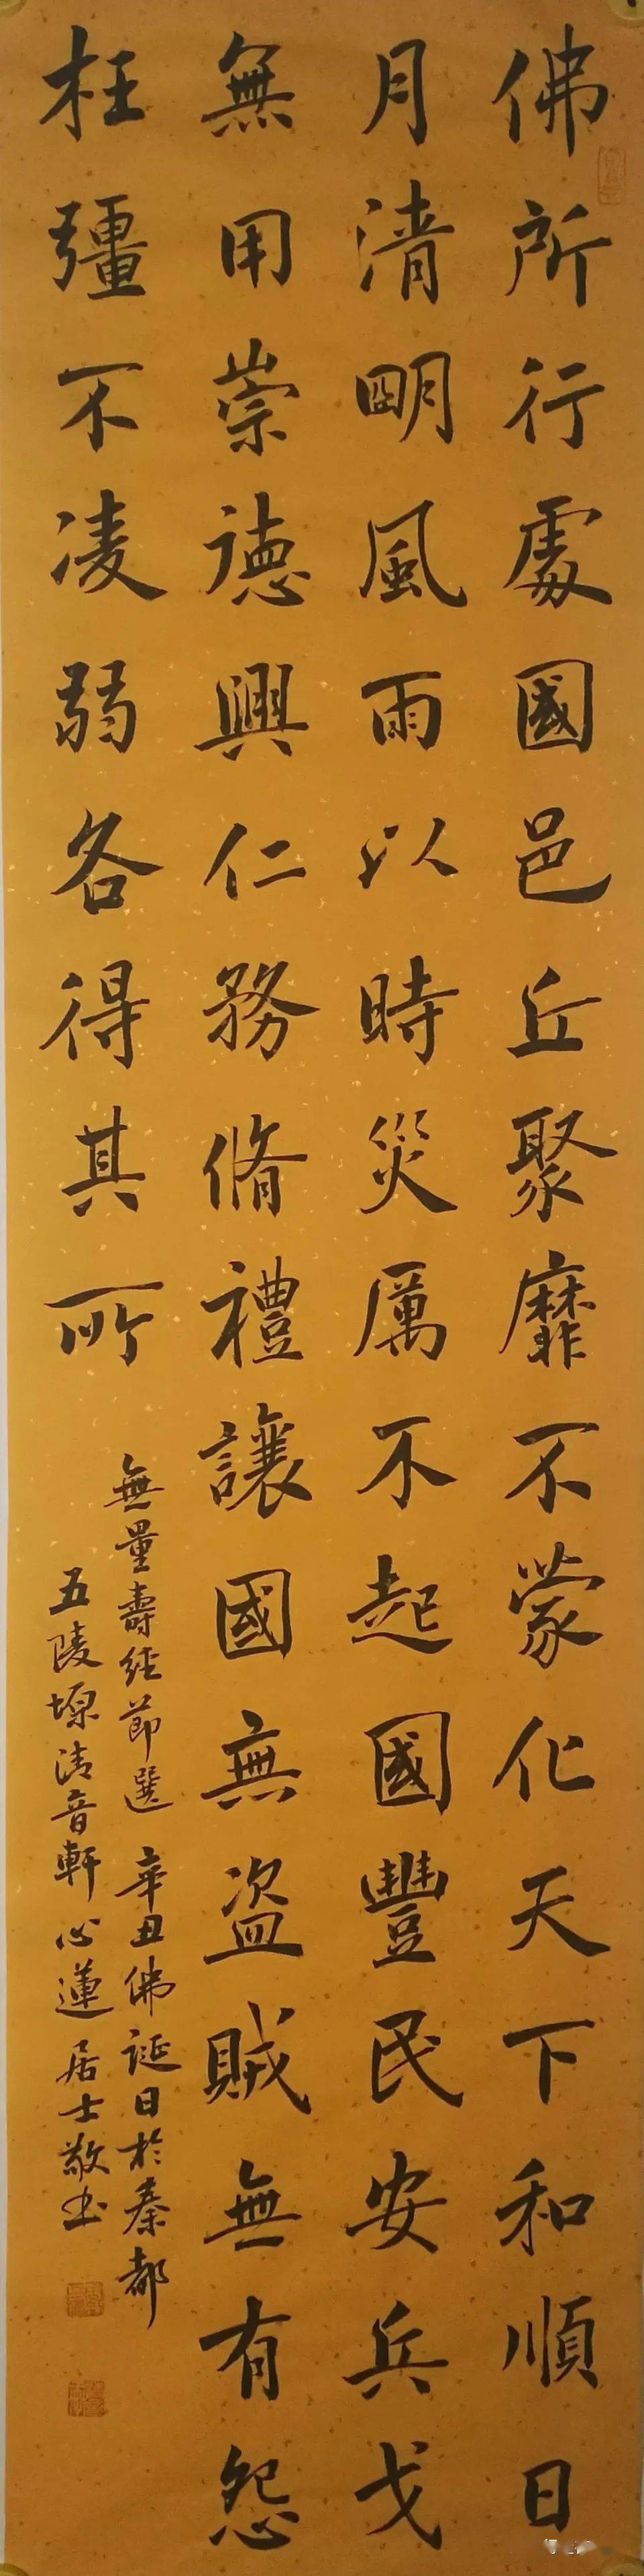 佛所行處國邑丘聚靡不蒙化天下和順日
月清明風雨以時災厲不起國豐民安兵戈
無用崇德興仁務脩禮讓國無盜賊無有怨
枉彊不凌弱各得其所
無量壽經節選 辛丑佛誕日於秦都
五陵塬清音軒心蓮居士敬书